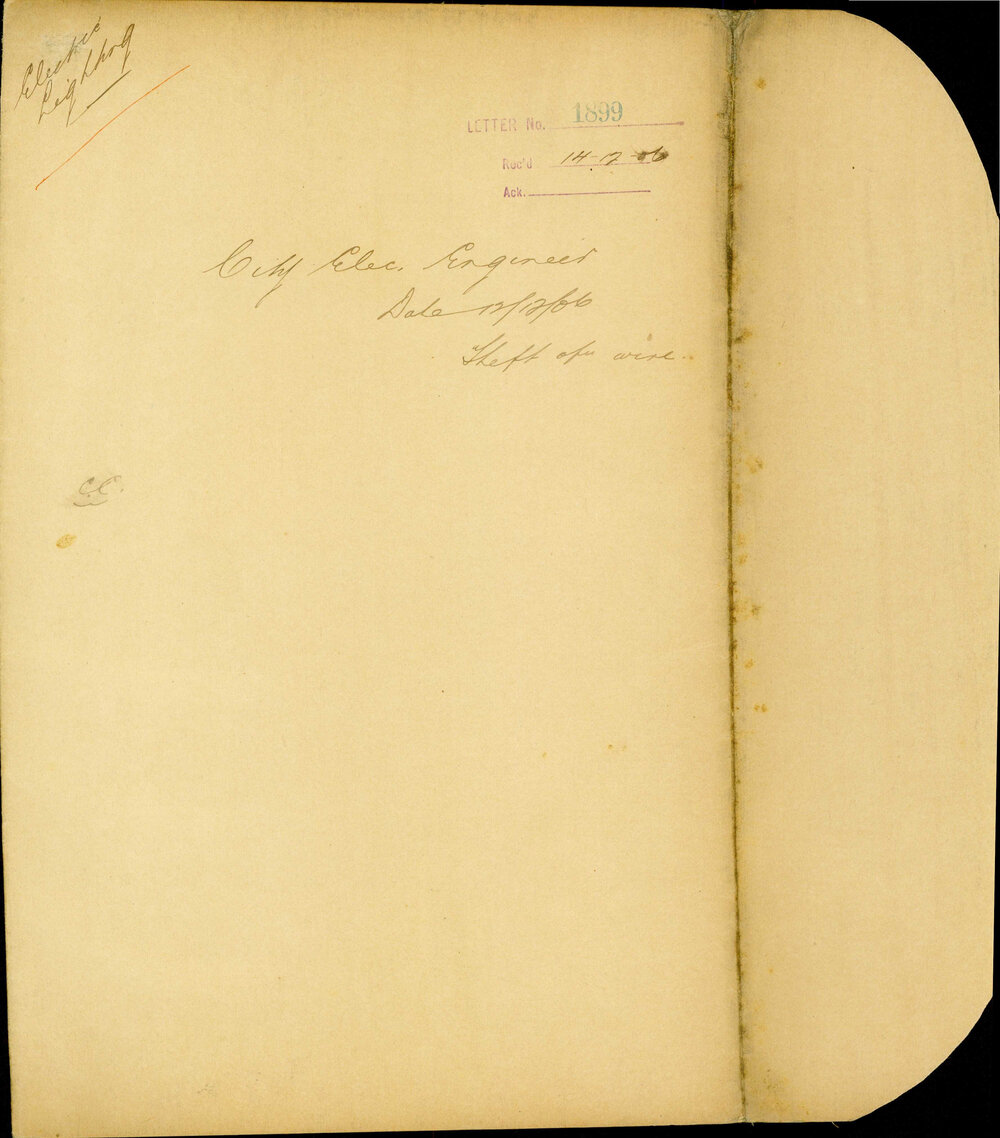 Electric
Lighting
LETTER No. 1899
Rec'd 14-12-06
Ack.
City Elec. Engineer
Date 12/12/06
Theft of wire
C.C.